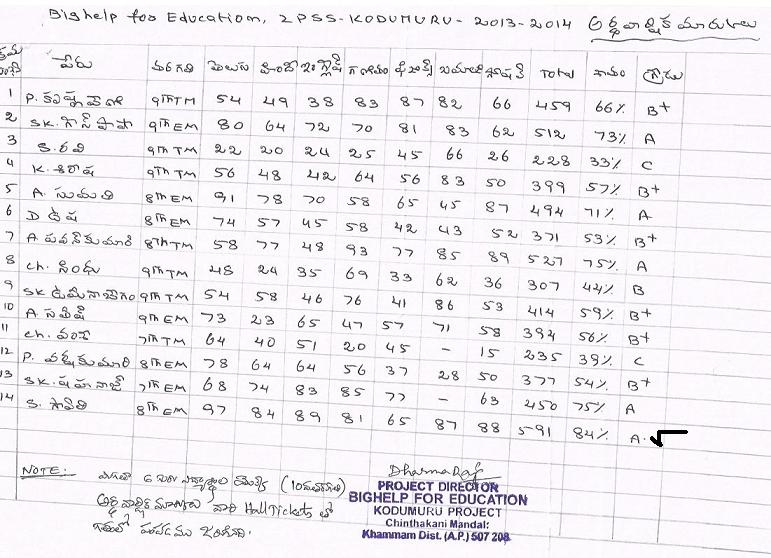 Bighelp for Education, ZPSS-KODUMURU-2013-2014 అర్థ వార్షిక మార్కులు
క్రమ సంఖ్య పేరు తరగతి తెలుగు హిందీ ఇంగ్లీష్ గణితం ఫిజిక్స్ బయాలజీ సోషల్ Total శాతం గ్రేడు
1 P. 9th TM 54 49 38 83 87 82 66 459 66% B+
2 SK. 9th EM 80 64 72 70 81 83 62 512 73% A
3 S. రవి 9th TM 22 20 24 25 45 66 26 228 33% C
4 K. శిరీష 9th TM 56 48 42 64 56 83 50 399 57% B+
5 A. సుమతి 8th EM 91 78 70 58 65 45 87 494 71% A
6 D ఉష 8th EM 74 57 45 58 42 43 52 371 53% B+
7 A. పవన్ కుమారి 8th TM 58 77 48 93 77 85 89 527 75% A
8 ch. సింధు 9th TM 48 24 35 69 33 62 36 307 44% B
9 SK 9th TM 54 58 46 76 41 86 53 414 59% B+
10 A. 9th EM 73 23 65 47 57 71 58 394 56% B+
11 ch. వంశీ 7th TM 64 40 51 20 45 - 15 235 39% C
12 P. 8th EM 78 64 64 56 37 28 50 377 54% B+
13 SK. షహనాజ్ 7th EM 68 74 83 85 77 - 63 450 75% A
14 S. 8th EM 97 84 89 81 65 87 88 591 84% A. √
NOTE:- మిగతా 6 గురు విద్యార్థుల యొక్క (10వతరగతి)
అర్థ వార్షిక మార్కులు వారి Hall Tickets తో
గతంలో పంపడము జరిగినది.
Dharma Raj
PROJECT DIRECTOR
BIGHELP FOR EDUCATION
KODUMURU PROJECT
Chinthakani Mandal:
Khammam Dist. (A.P.) 507 208.